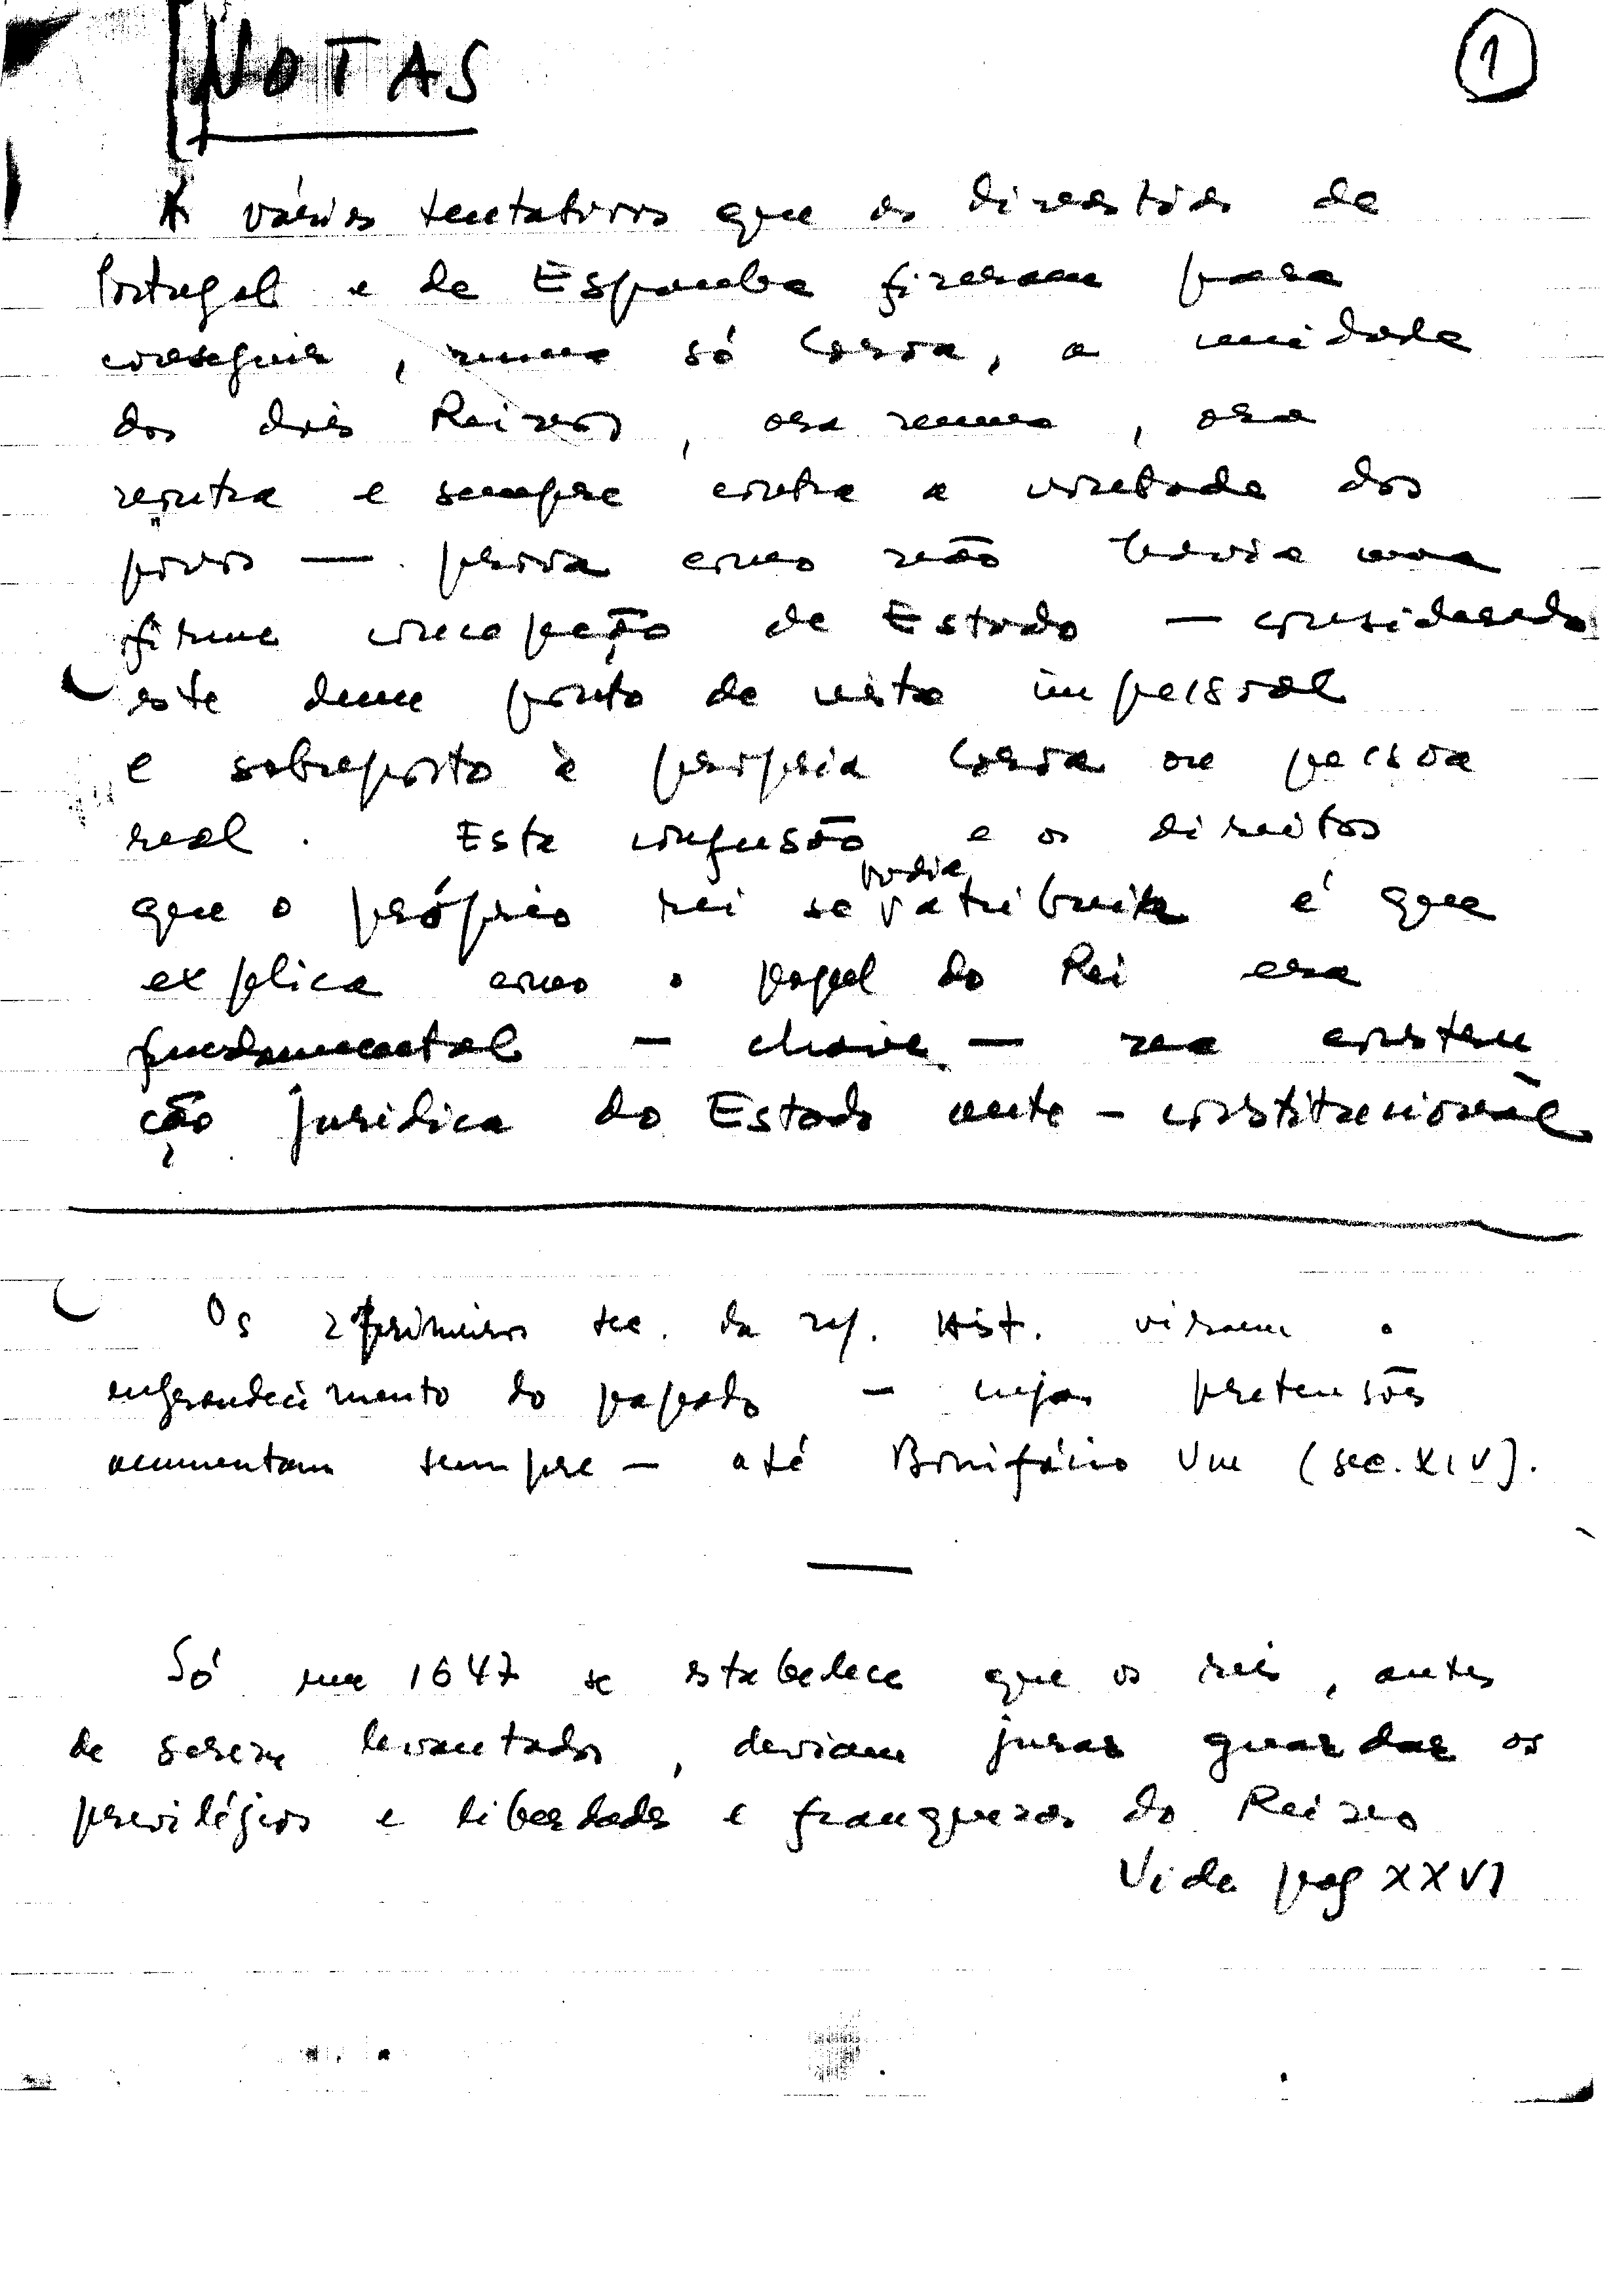 NOTAS
1
As várias tentativas que as dinastias de
Portugal e de Espanha fizeram para
conseguir, numa só Coroa, a unidade
dos dois Reinos, ora numa, ora
noutra e sempre contra a vontade dos
povos — prova como não havia uma
firme concepção de Estado — considerado
este dum ponto de vista impessoal
e sobreposto à própria Coroa ou pessoa
real. Esta confusão e os direitos
que o próprio rei se podia atribuir é que
explica como o papel do Rei era
fundamental — chave — na constru
ção jurídica do Estado ante-constitucional
Os 2 primeiros sec. da Hist. viram o
engrandecimento do papado — cujas pretensões
aumentam sempre — até Bonifácio VIII (sec. XIV).
Só em 1647 se estabelece que os reis, antes
de serem levantados, deviam jurar guardar os
previlégios e liberdades e franquezas do Reino
Vide pag XXVI